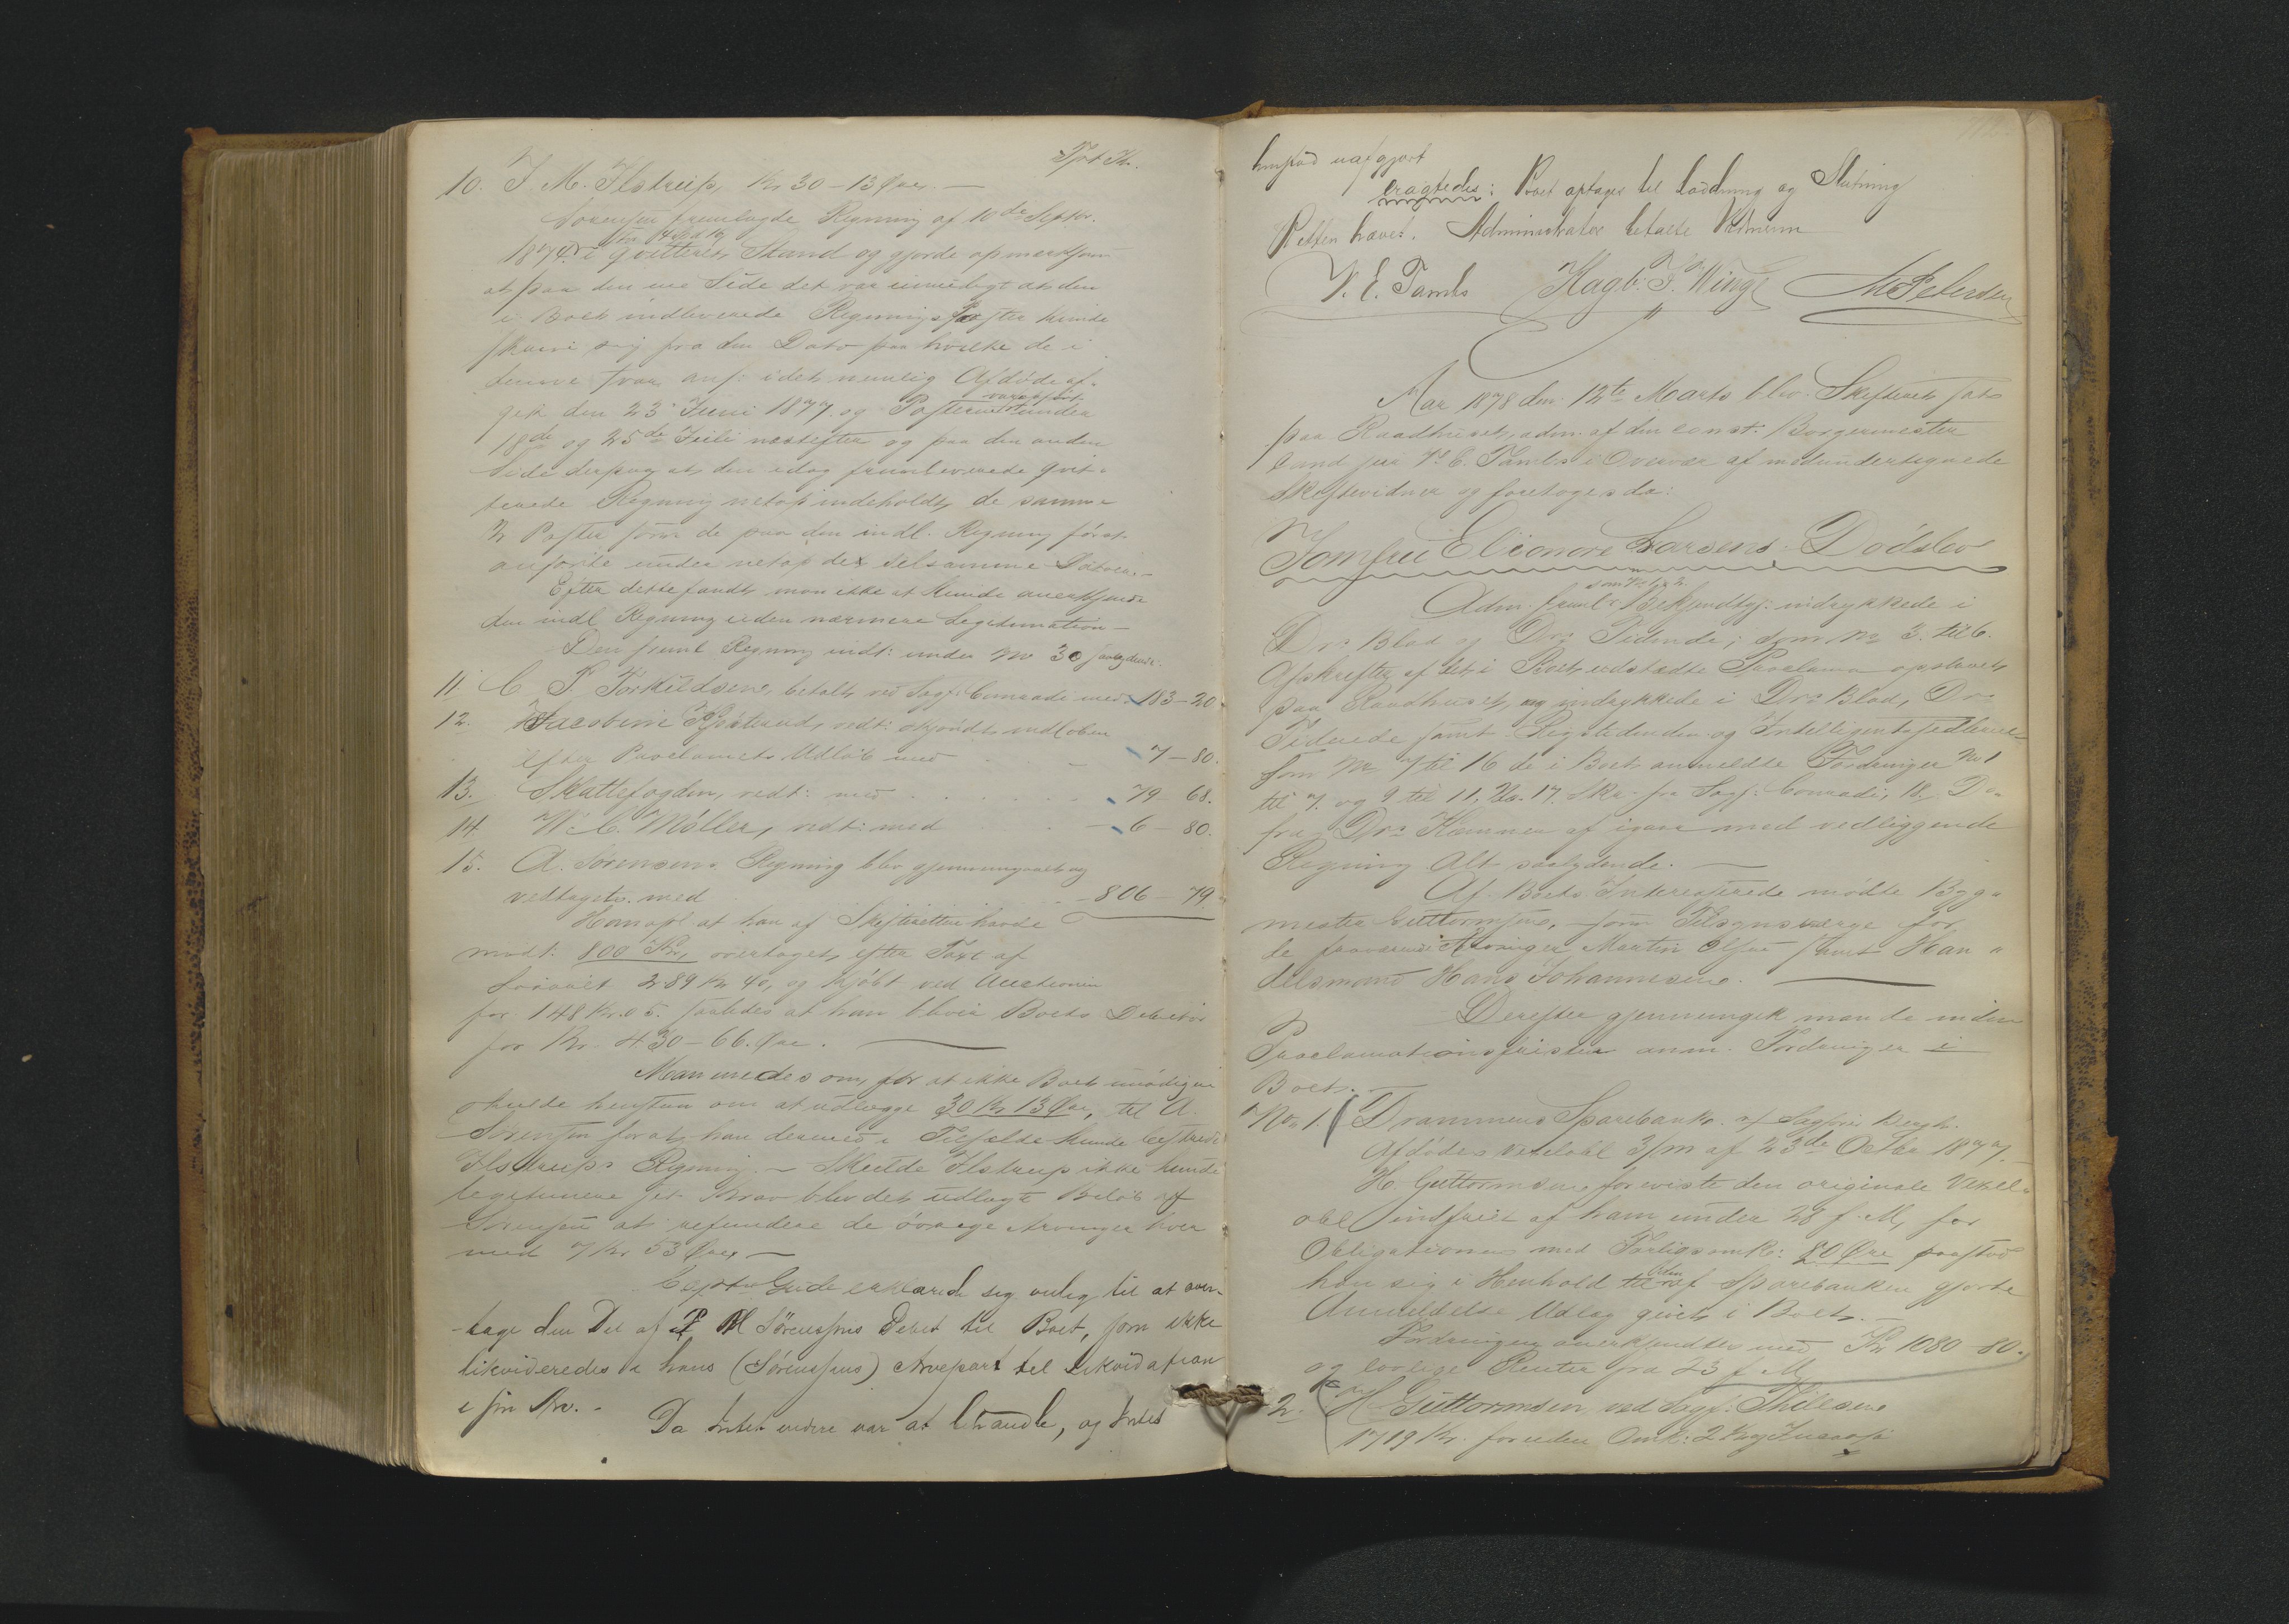 Tpt Kr.
10. J. M. Ilstrup, Kr 30 - 13 Øre. —
Sørensen fremlagde Regning af 10de Septbr.
1874 i qvitteret Stand og gjorde opmerksom
at paa den ene Side det var umuligt at den
i Boet indleverede Regnings Poster kunde
skrive sig fra den Dato paa hvilke de i
denne var anf: idet nemlig Afdøde af-
gik den 23 Juni 1877 og Posterne var opført under
18de og 25de Juli næstefter og paa den anden
Side derpaa at den idag fremleverede qvit-
terede Regning netop indeholdt de samme
2 Poster som de paa den indl. Regning først
anførte under netop de selsamme Datoer. —
Efter dette fandt man ikke at kunde anerkjende
den indl Regning uden nærmere Legitimation —
Den freml Regning indt: under No 30 saalydende:
11. C. P. Torkildsen, betalt ved Sagf. Conradi med 183 - 20
12. Jacobine, vedt: skjøndt indløben
efter Proclamets Udløb med 7 - 80.
13. Skattefogden, vedt: med 79 68.
14. W. C. Møller, vedt: med 6 - 80.
15. A. Sørensens Regning blev gjennemgaaet og
vedtaget med 806 - 79
Han opl at han af Skifteretten havde
modt: 800 Kr, overtaget efter Taxt af
Løsøret 289 Kr 40, og kjøbt ved Auctionen
for 148 Kr. 05. saaledes at han blev Boets Debitor
for Kr. 430 - 66. Øre. —
Man enedes om, for at ikke Boet unødigen
skulde henstaa om at udlægge 30 Kr 13 Øre, til A.
Sørensen forat han dermed i Tilfælde kunde bestride
Ilstrups Regning. — Skulde Ilstrup ikke kunde
legitimere sit Krav blev det udlagte Beløb af
Sørensen at refundere de øvrige Arvinger hver
med 7 Kr 53 Øre, —
Gude erklærede sig villig til at over-
tage den Del af M Sörensens Debet til Boet, som ikke
likvideredes i hans (Sörensens) Arvepart til Likvidation
i sin Arv. -
Da Intet videre var at behandle, og Intet
henstod uafgjort
eragtedes: Boet optages til Lodning og Slutning
Retten hævet. Administrator betalte Vidnerne
V. E. Tambs Hagb. T. Winge M Petersen
Aar 1878 den 12te Marts blev Skifteret sat
paa Raadhuset, adm. af den const. Borgermester
Cand jur V. E. Tambs i Overvær af medundertegnede
Skiftevidner og foretoges da:
Jomfru Elionore Larsens Dødsbo
Adm. freml. som No 1 & 2. Bekjendtgj: indrykkede i
Drs Blad og Drs Tidende; som No 3. til 6.
Afskrifter af det i Boet udstedte Proclama opslaaet
paa Raadhuset, og indrykkede i Drs Blad, Drs
Tidende samt Rigstidenden og Intelligentssedlerne
som No 7 til 16 de i Boet anmeldte Fordringer No 1
til 7. og 9 til 11, No. 17. Skr. fra Sagf: Conradi, 18. Do
fra Drs Kæmner af igaar med vedliggende
Regning Alt saalydende. —
Af Boets Interesserede mødte Bygg-
mester Guttormsen, som Tilsynsværge for
de fraværende Arvinger Martin Olsen samt Han-
delsmand Hans Johannesen. —
Derefter gjennemgik man de inden
Proclamationsfristen anm. Fordringer i
Boet. —
No 1. Drammens Sparebank af Sagfør Bergh.
Afdødes Vexelobl 3/m af 23de Octbr 1877. —
H. Guttormsen foreviste den originale Vexel-
obl indfriet af ham under 28 f. M, for
Obligationen med Forligsomk: 80 Øre paastod
han sig i Henhold til den af Sparebanken gjorte
Anmeldelse Udlæg givet i Boet. —
Fordringen anerkjendtes med Kr 1080 - 80.
og lovlige Renter fra 23 f. M,
2. H Guttormsen ved Sagf: Thilesen
1719 Kr. foruden Omk: 2 Kr og Incassa